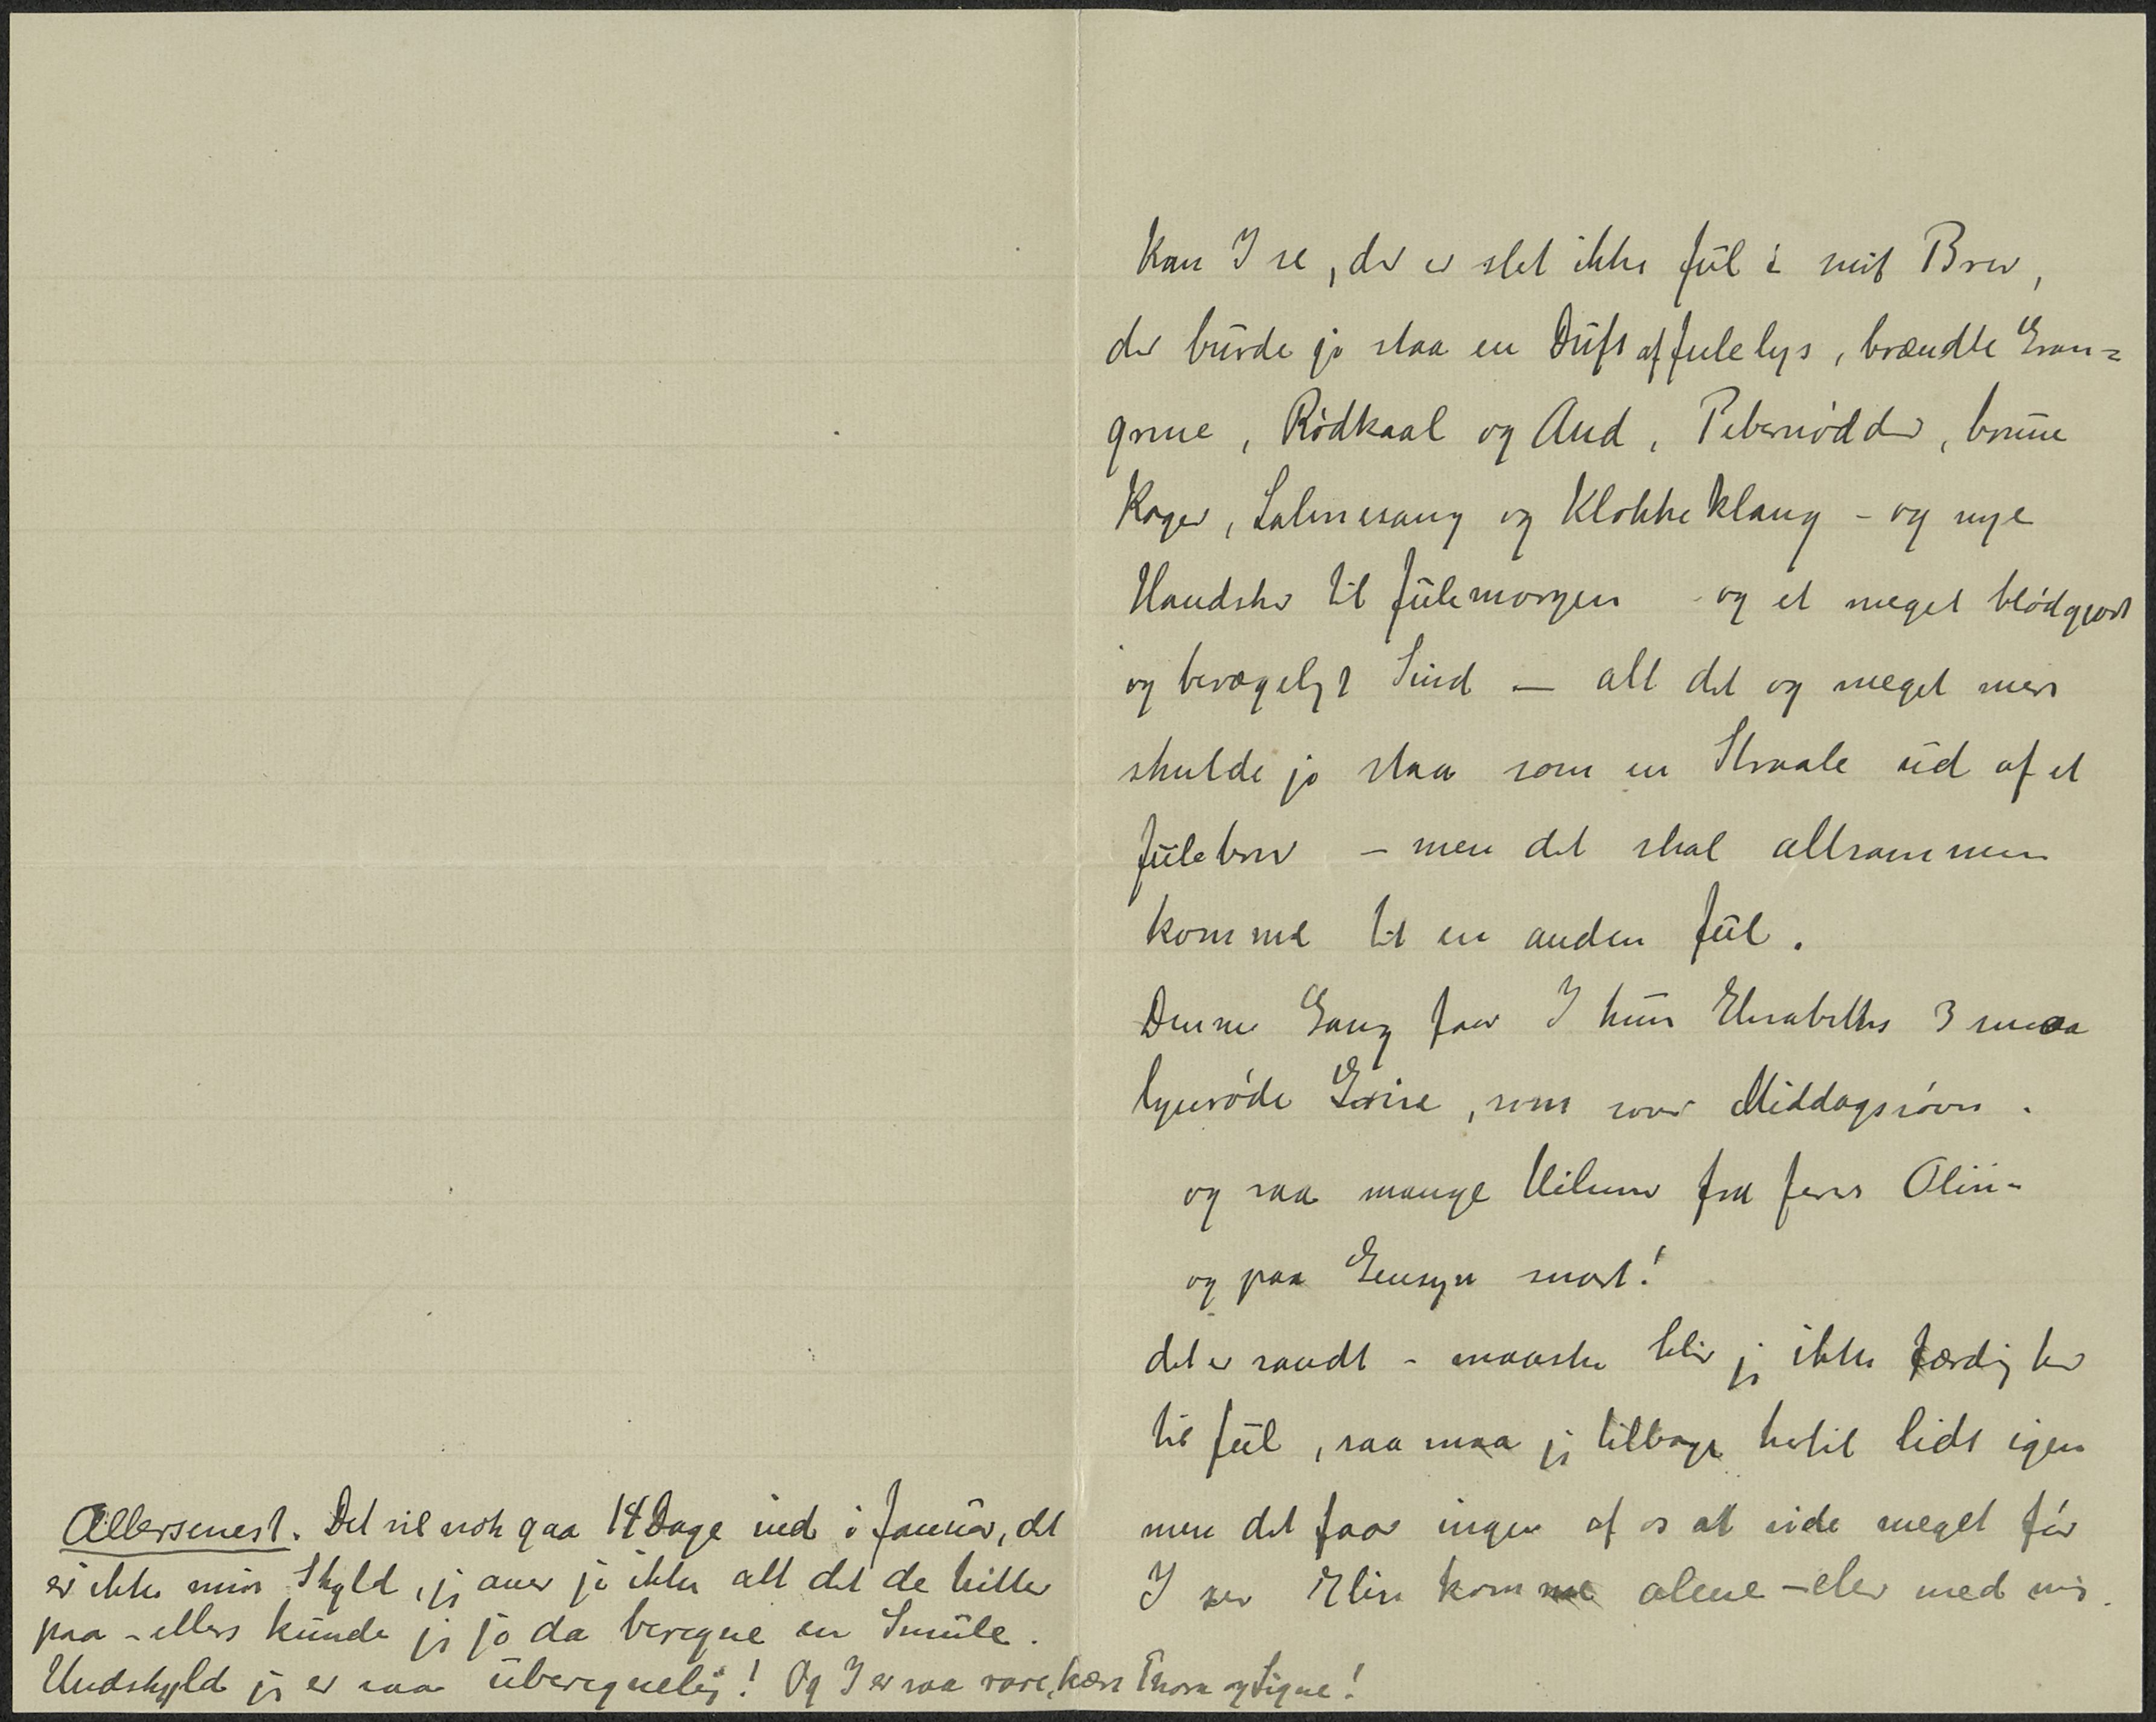 Kan I se, der er slet ikke Jul i mit Brev,
der burde jo staa en Duft af Julelys, brændte Gran=
grene, Rødkaal og And, Pebernødder, brune
Kager, Salmesang og Klokkeklang – og nye
Handsker til Julemorgen – og et meget blødgjort
og bevægeligt Sind — alt det og meget mere
skulde jo staa som en Straale ud af et
Julebrev – men det skal altsammen
komme til en anden Jul.
Denne Gang faar I kun Elisabeths 3 smaa
lyserøde Grise, som sover Middagssøvn.
og saa mange Hilsner fra Jeres
og paa Gensyn snart!
det er sandt – maaske bliv jeg ikke færdig her
til Jul, saa maa jeg tilbage hertil lidt igen
men det faar ingen af os at vide meget før
I ser Elin komme alene – eler med mig.
Allersenest. Det vil nok gaa 14 Dage ind i Januar, det
er ikke min Skyld, jeg aner jo ikke alt det de hitter
paa – ellers kunde jeg jo da beregne en Smule.
Undskyld jeg er saa uberegnelig! Og I er saa rare, kære Thora og Signe!